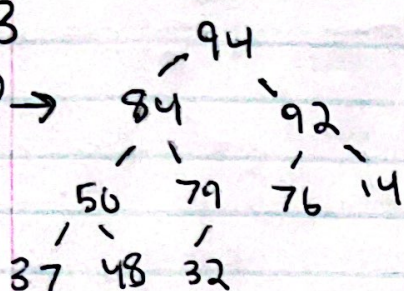 3
94
) → 84 92
50 79 76 14
37 48 32